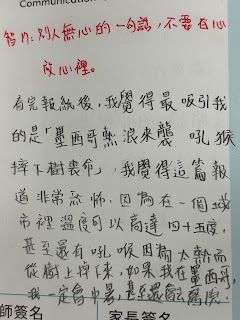 Communication
智力:別人無心的一句話,不要在心
放心裡。
看完報紙後,我覺得最吸引我
的是「墨西哥熱浪來襲 吼猴
摔下樹喪命」,我覺得這篇報
道非常恐怖,因為在一個城
市裡溫度可以高達四十五度,
甚至還有吼猴因為太熱而
從樹上掉下來,如果我在墨西哥,
我一定會中暑,甚至還會去醫院。
師簽名
家長簽名